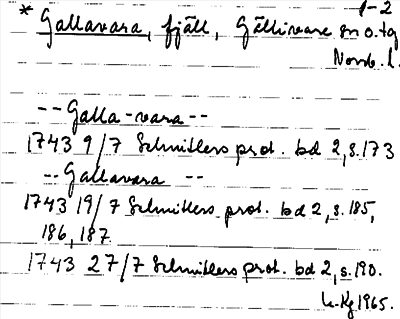 1-2
* Gallavara, fjäll, Gällivare sn o. tg
Norrb. l.
-- Galla-vara --
1743 9/7 Schnitlers prot. bd 2, s. 173
-- Gallavara --
1743 19/7 Schnitlers prot. bd 2, s. 185,
186, 187
1743 27/7 Schnitlers prot. bd 2, s. 190.
1965.